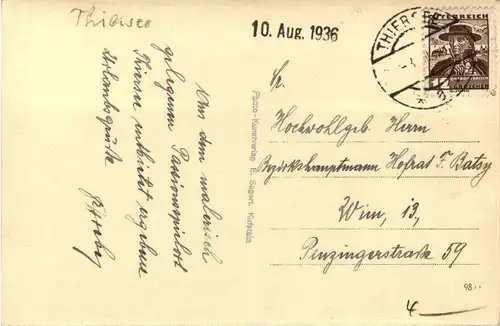 Thiersee
10. Aug. 1936
THIERSEE
ÖSTERREICH
Aus dem malerisch
gelegenen Passionsspielort
Thiersee entbietet ergebene
Urlaubsgrüsse
Photo-Kunstverlag G. Kufstein
Sr.
Hochwohlgeb. Herrn
Bezirkshauptmann Hofrat F. Batsy
Wien, 13,
Penzingerstraße 59
98
4